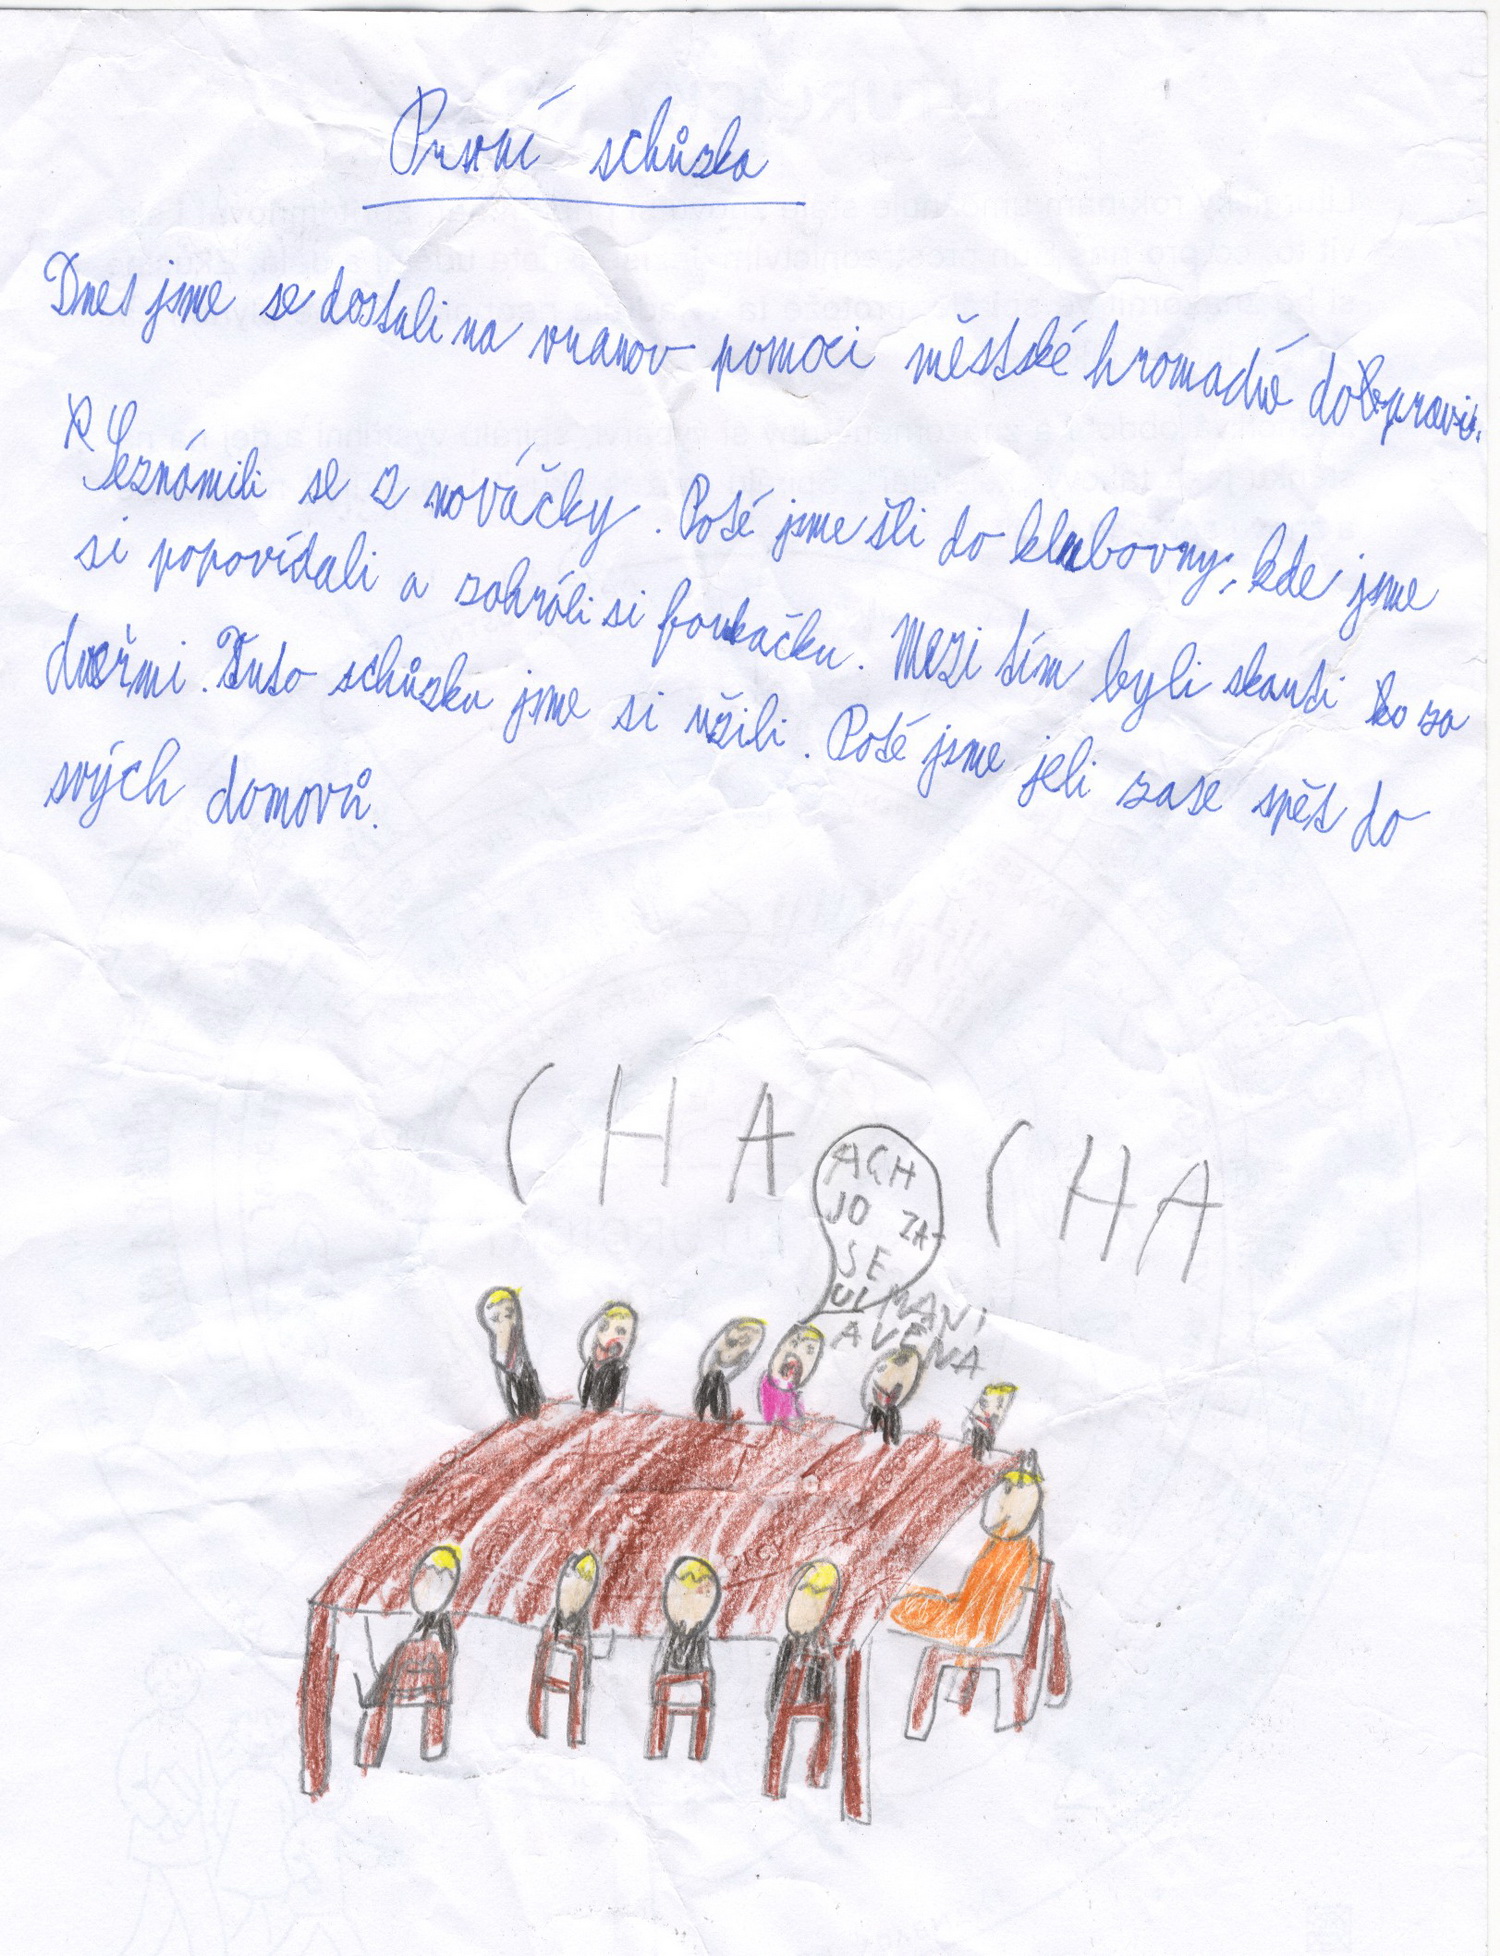 První schůzka
Dnes jsme se dostali na vranov pomoci městské hromadné dopravi.
Seznámili se z nováčky. Poté jsme šli do klubovny, kde jsme
si popovídali a zahráli si foukačku. Mezi tím byli skauti za
dveřmi. Tuto schůzku jsme si užili. Poté jsme jeli zase spět do
svých domovů.
CHA CHA
ACH
JO ZA-
SE
MANI